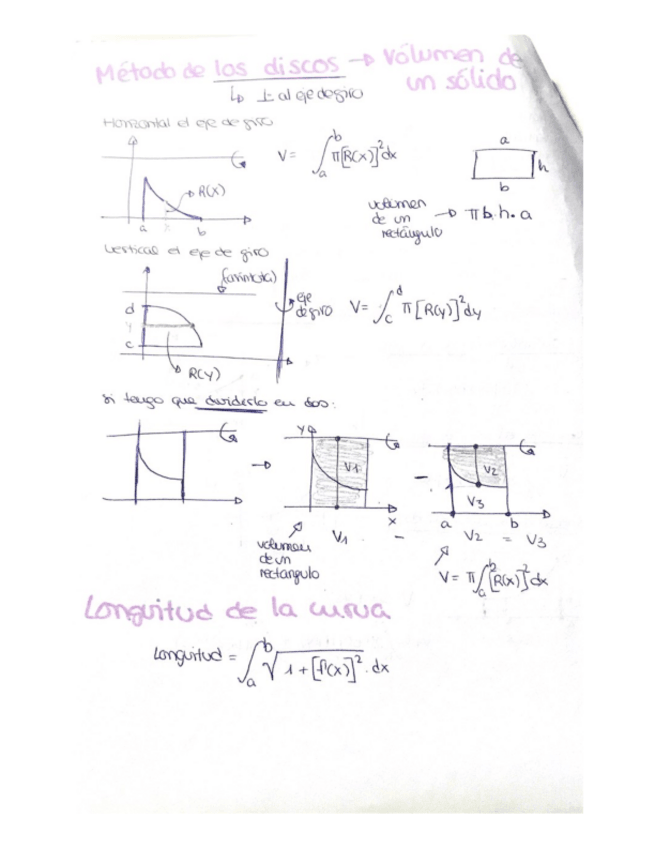 Método de los discos → Vólumen de
un sólido
↳ ⊥ al eje de giro
Horizontal el eje de giro
V = ∫ₐᵇ π[R(x)]² dx
R(x)
a x b
a
h
b
volumen
de un → π b. h. a
rectángulo
Vertical el eje de giro
(asíntota)
d
y
c
R(y)
eje
de giro
V = ∫꜀ᵈ π[R(y)]² dy
Si tengo que dividirlo en dos:
→
y
V1
x
-
V2
V3
a b
V1 - V2 = V3
volumen
de un
rectangulo
V = π ∫ₐᵇ [R(x)]² dx
Longuitud de la curva
Longuitud = ∫ₐᵇ √1 + [f'(x)]² . dx